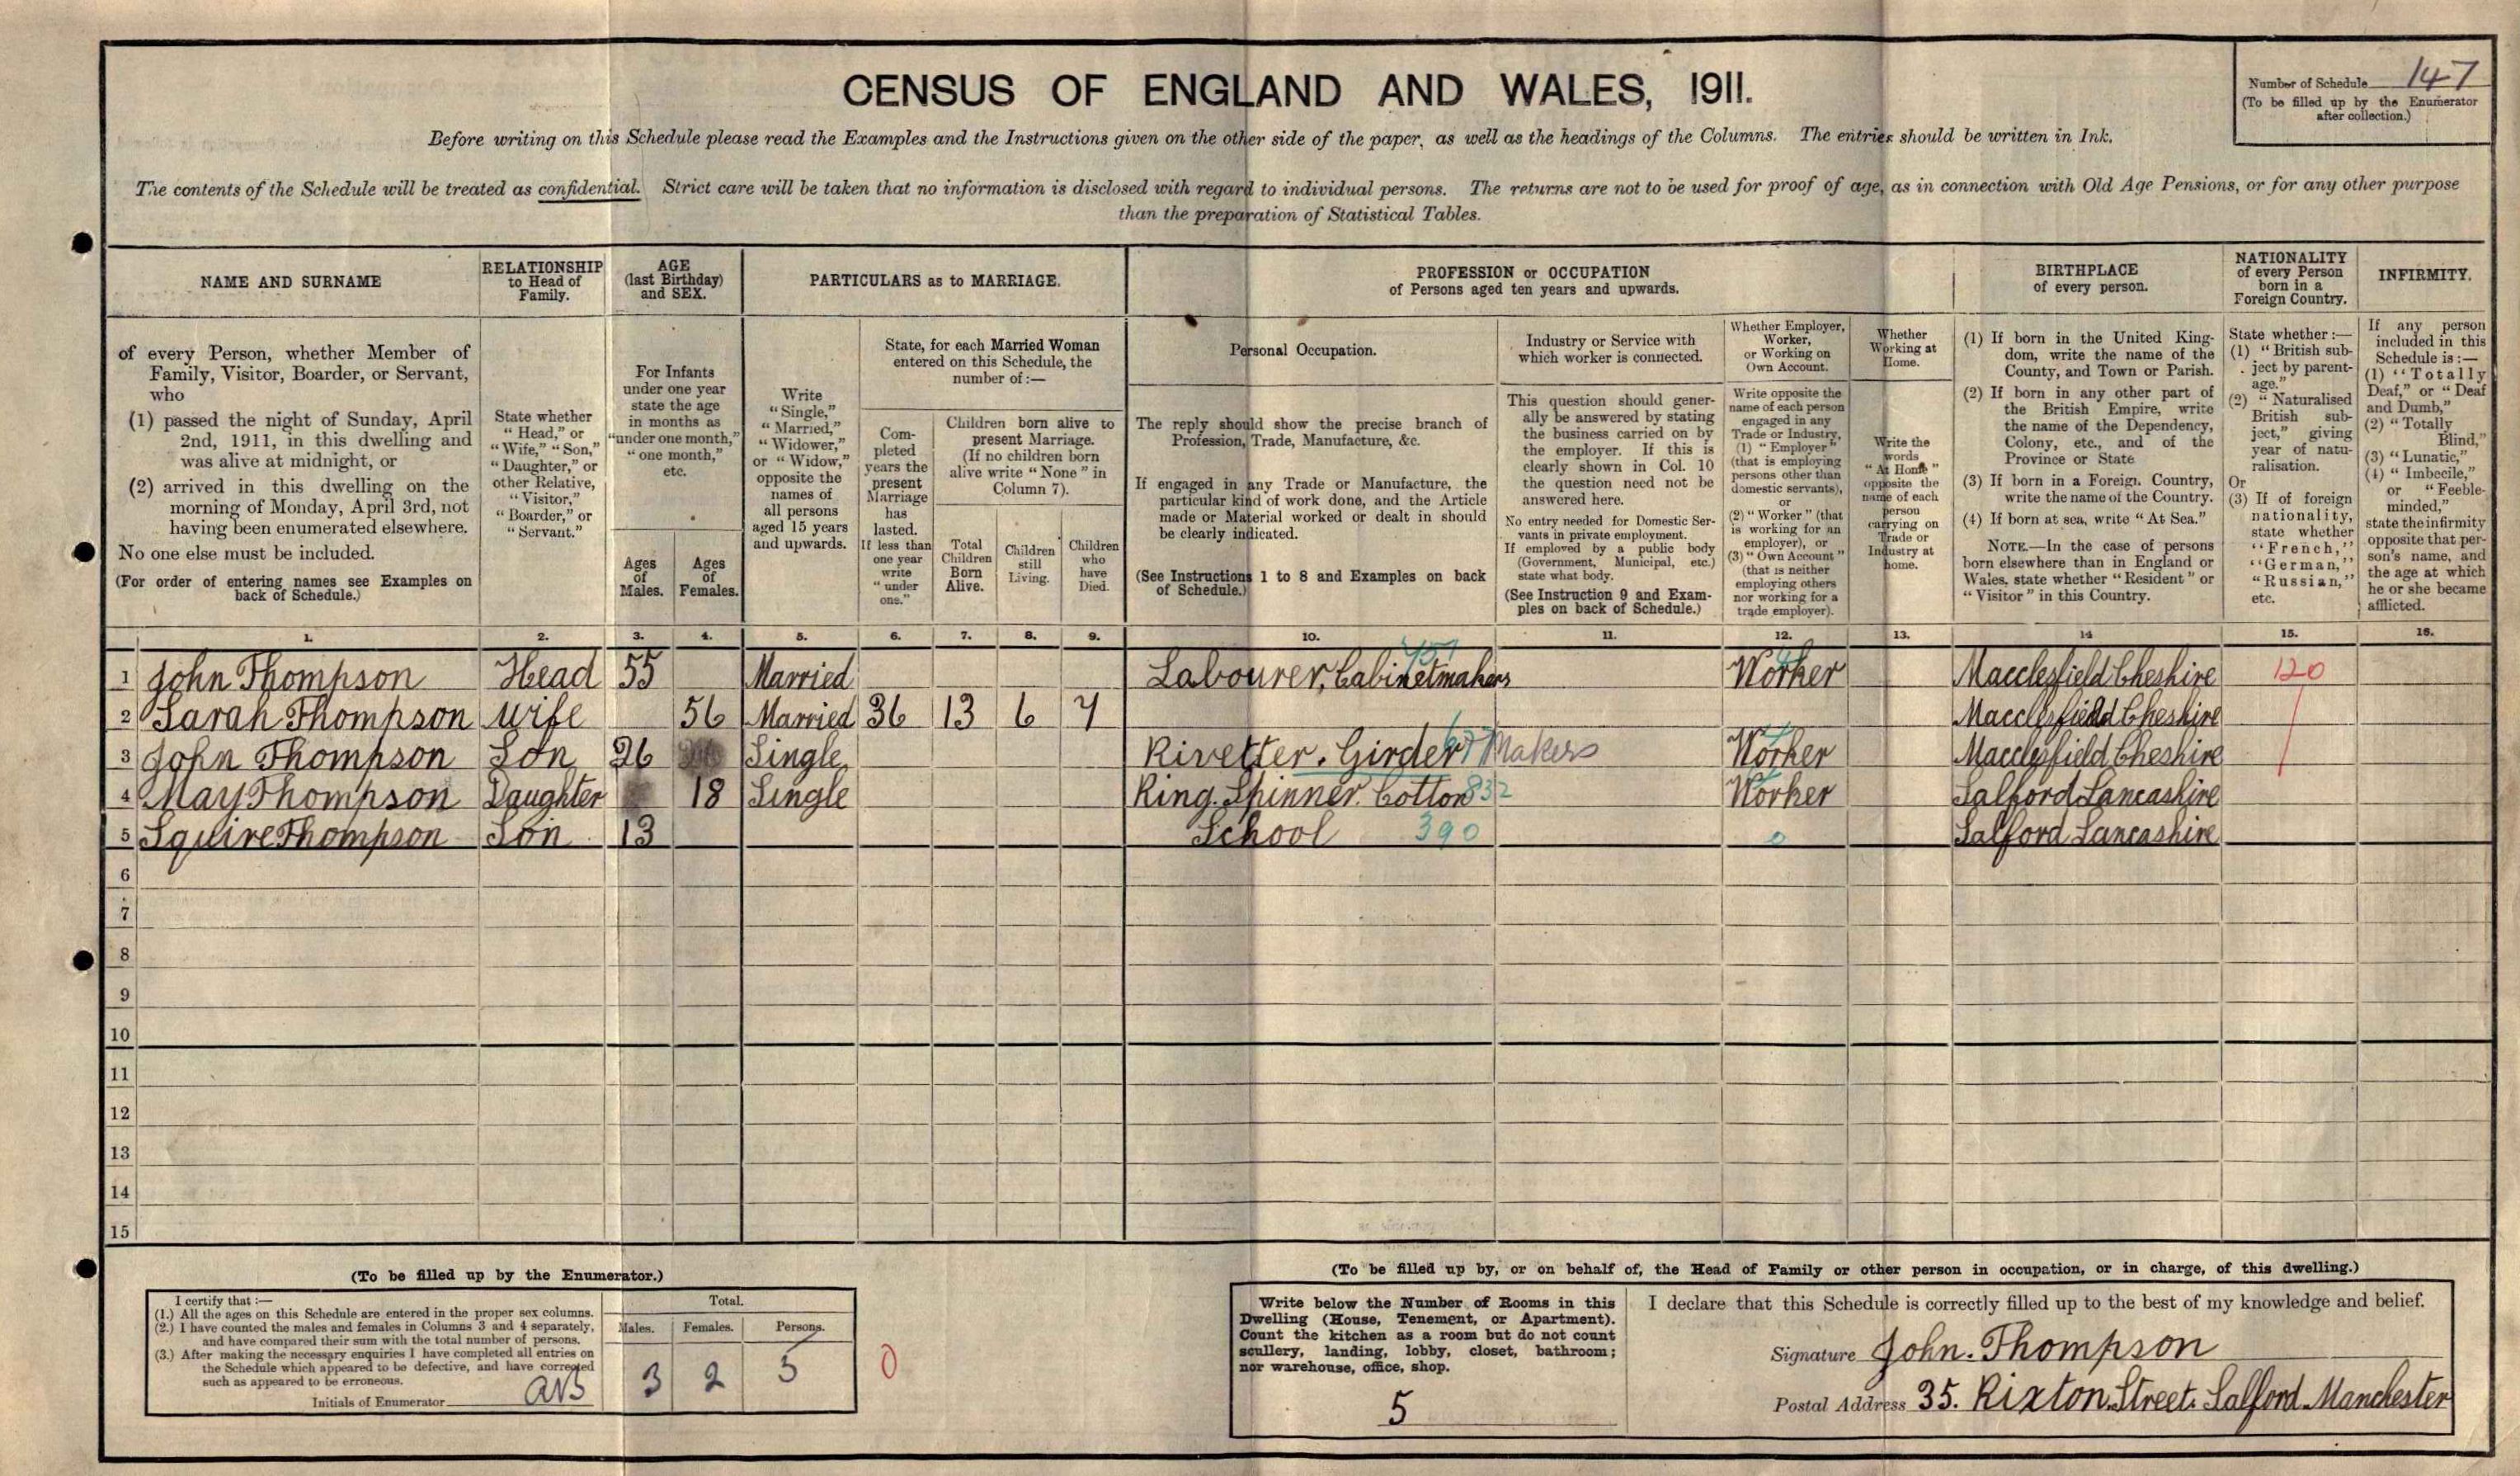 CENSUS OF ENGLAND AND WALES, 1911.
Number of Schedule 147
(To be filled up by the Enumerator
after collection.)
Before writing on this Schedule please read the Examples and the Instructions given on the other side of the paper, as well as the headings of the Columns. The entries should be written in Ink.
The contents of the Schedule will be treated as confidential. Strict care will be taken that no information is disclosed with regard to individual persons. The returns are not to be used for proof of age, as in connection with Old Age Pensions, or for any other purpose
than the preparation of Statistical Tables.
NAME AND SURNAME
of every Person, whether Member of
Family, Visitor, Boarder, or Servant,
who
(1) passed the night of Sunday, April
2nd, 1911, in this dwelling and
was alive at midnight, or
(2) arrived in this dwelling on the
morning of Monday, April 3rd, not
having been enumerated elsewhere.
No one else must be included.
(For order of entering names see Examples on
back of Schedule.)
RELATIONSHIP
to Head of
Family.
State whether
"Head," or
"Wife," "Son,"
"Daughter," or
other Relative,
"Visitor,"
"Boarder," or
"Servant."
AGE
(last Birthday)
and SEX.
For Infants
under one year
state the age
in months as
"under one month,"
"one month,"
etc.
Ages
of
Males.
Ages
of
Females.
PARTICULARS as to MARRIAGE.
Write
"Single,"
"Married,"
"Widower,"
or "Widow,"
opposite the
names of
all persons
aged 15 years
and upwards.
State, for each Married Woman
entered on this Schedule, the
number of:—
Com-
pleted
years the
present
Marriage
has
lasted.
If less than
one year
write
"under
one."
Children born alive to
present Marriage.
(If no children born
alive write "None" in
Column 7).
Total
Children
Born
Alive.
Children
still
Living.
Children
who
have
Died.
PROFESSION or OCCUPATION
of Persons aged ten years and upwards.
Personal Occupation.
The reply should show the precise branch of
Profession, Trade, Manufacture, &c.
If engaged in any Trade or Manufacture, the
particular kind of work done, and the Article
made or Material worked or dealt in should
be clearly indicated.
(See Instructions 1 to 8 and Examples on back
of Schedule.)
Industry or Service with
which worker is connected.
This question should gener-
ally be answered by stating
the business carried on by
the employer. If this is
clearly shown in Col. 10
the question need not be
answered here.
No entry needed for Domestic Ser-
vants in private employment.
If employed by a public body
(Government, Municipal, etc.)
state what body.
(See Instruction 9 and Exam-
ples on back of Schedule.)
Whether Employer,
Worker,
or Working on
Own Account.
Write opposite the
name of each person
engaged in any
Trade or Industry,
(1) "Employer"
(that is employing
persons other than
domestic servants),
or
(2) "Worker" (that
is working for an
employer), or
(3) "Own Account"
(that is neither
employing others
nor working for a
trade employer).
Whether
Working at
Home.
Write the
words
"At Home"
opposite the
name of each
person
carrying on
Trade or
Industry at
home.
BIRTHPLACE
of every person.
(1) If born in the United King-
dom, write the name of the
County, and Town or Parish.
(2) If born in any other part of
the British Empire, write
the name of the Dependency,
Colony, etc., and of the
Province or State
(3) If born in a Foreign Country,
write the name of the Country.
(4) If born at sea, write "At Sea."
NOTE.—In the case of persons
born elsewhere than in England or
Wales, state whether "Resident" or
"Visitor" in this Country.
NATIONALITY
of every Person
born in a
Foreign Country.
State whether:—
(1) "British sub-
ject by parent-
age."
(2) "Naturalised
British sub-
ject," giving
year of natu-
ralisation.
Or
(3) If of foreign
nationality,
state whether
"French,"
"German,"
"Russian,"
etc.
INFIRMITY.
If any person
included in this
Schedule is:—
(1) "Totally
Deaf," or "Deaf
and Dumb,"
(2) "Totally
Blind,"
(3) "Lunatic,"
(4) "Imbecile,"
or "Feeble-
minded,"
state the infirmity
opposite that per-
son's name, and
the age at which
he or she became
afflicted.
1. 2. 3. 4. 5. 6. 7. 8. 9. 10. 11. 12. 13. 14 15. 16.
1 John Thompson Head 55 Married Labourer, Cabinetmakers Worker Macclesfield Cheshire 120
2 Sarah Thompson Wife 56 Married 36 13 6 7 Macclesfield Cheshire
3 John Thompson Son 26 Single Rivetter. Girder Makers Worker Macclesfield Cheshire
4 May Thompson Daughter 18 Single Ring. Spinner. Cotton 832 Worker Salford Lancashire
5 Squire Thompson Son 13 School 390 0 Salford Lancashire
6
7
8
9
10
11
12
13
14
15
(To be filled up by the Enumerator.)
I certify that:—
(1.) All the ages on this Schedule are entered in the proper sex columns.
(2.) I have counted the males and females in Columns 3 and 4 separately,
and have compared their sum with the total number of persons.
(3.) After making the necessary enquiries I have completed all entries on
the Schedule which appeared to be defective, and have corrected
such as appeared to be erroneous.
Initials of Enumerator
Total.
Males. Females. Persons.
3 2 5
0
(To be filled up by, or on behalf of, the Head of Family or other person in occupation, or in charge, of this dwelling.)
Write below the Number of Rooms in this
Dwelling (House, Tenement, or Apartment).
Count the kitchen as a room but do not count
scullery, landing, lobby, closet, bathroom;
nor warehouse, office, shop.
5
I declare that this Schedule is correctly filled up to the best of my knowledge and belief.
Signature John. Thompson
Postal Address 35. Rixton. Street. Salford. Manchester